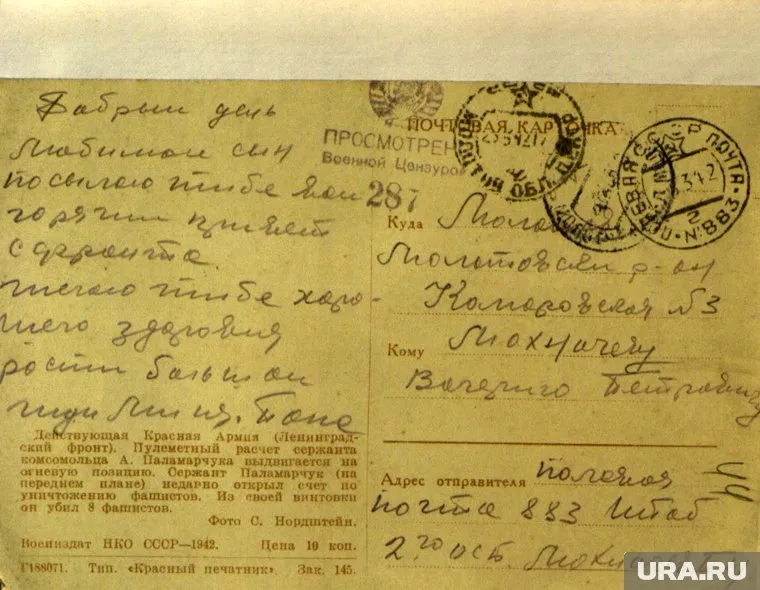 Добрый день
Любимой сын
посылаю тибе вой
горячий привет
с фронта.
желаю тибе харо-
шего здоровия
рости большой
жди Миня. Папа
Действующая Красная Армия (Ленинград-
ский фронт). Пулеметный расчет сержанта
комсомольца А. Паламарчука выдвигается на
огневую позицию. Сержант Паламарчук (на
переднем плане) недавно открыл счет по
уничтожению фашистов. Из своей винтовки
он убил 8 фашистов.
Фото С. Нордштейн.
Воениздат НКО СССР—1942. Цена 10 коп.
Г188071. Тип. «Красный печатник». Зак. 145.
ПРОСМОТРЕНО
Военной Цензурой
287
ПОЧТОВАЯ КАРТОЧКА
СССР ПОЧТА
2
№883
Куда
Молотовский р-он
Комаровская №3
Кому Мохначеву
Петровичу
Адрес отправителя полевая
почта 883 Штаб
2го осб.
URA.RU